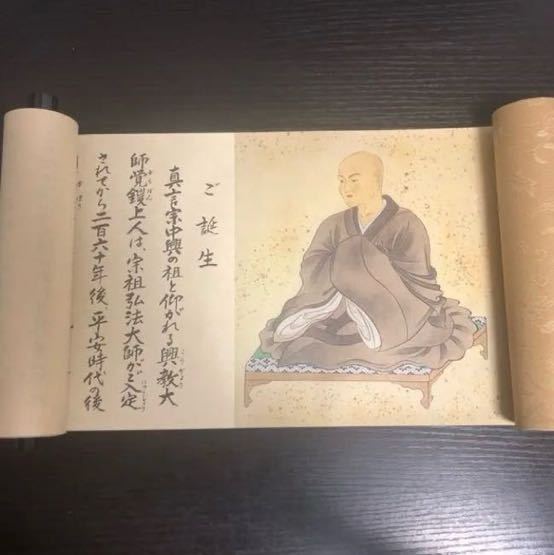 ご誕生
真言宗中興の祖と仰がれる興教大
師覚鑁上人は、宗祖弘法大師がご入定
されてから二百六十年後、平安時代の後